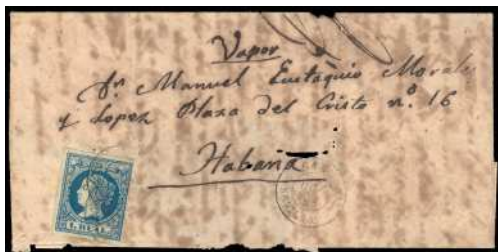 Vapor
Sr. Manuel Eutaquio Morales
y Lopez Plaza del Cristo n.º 16
Habana
1 REAL